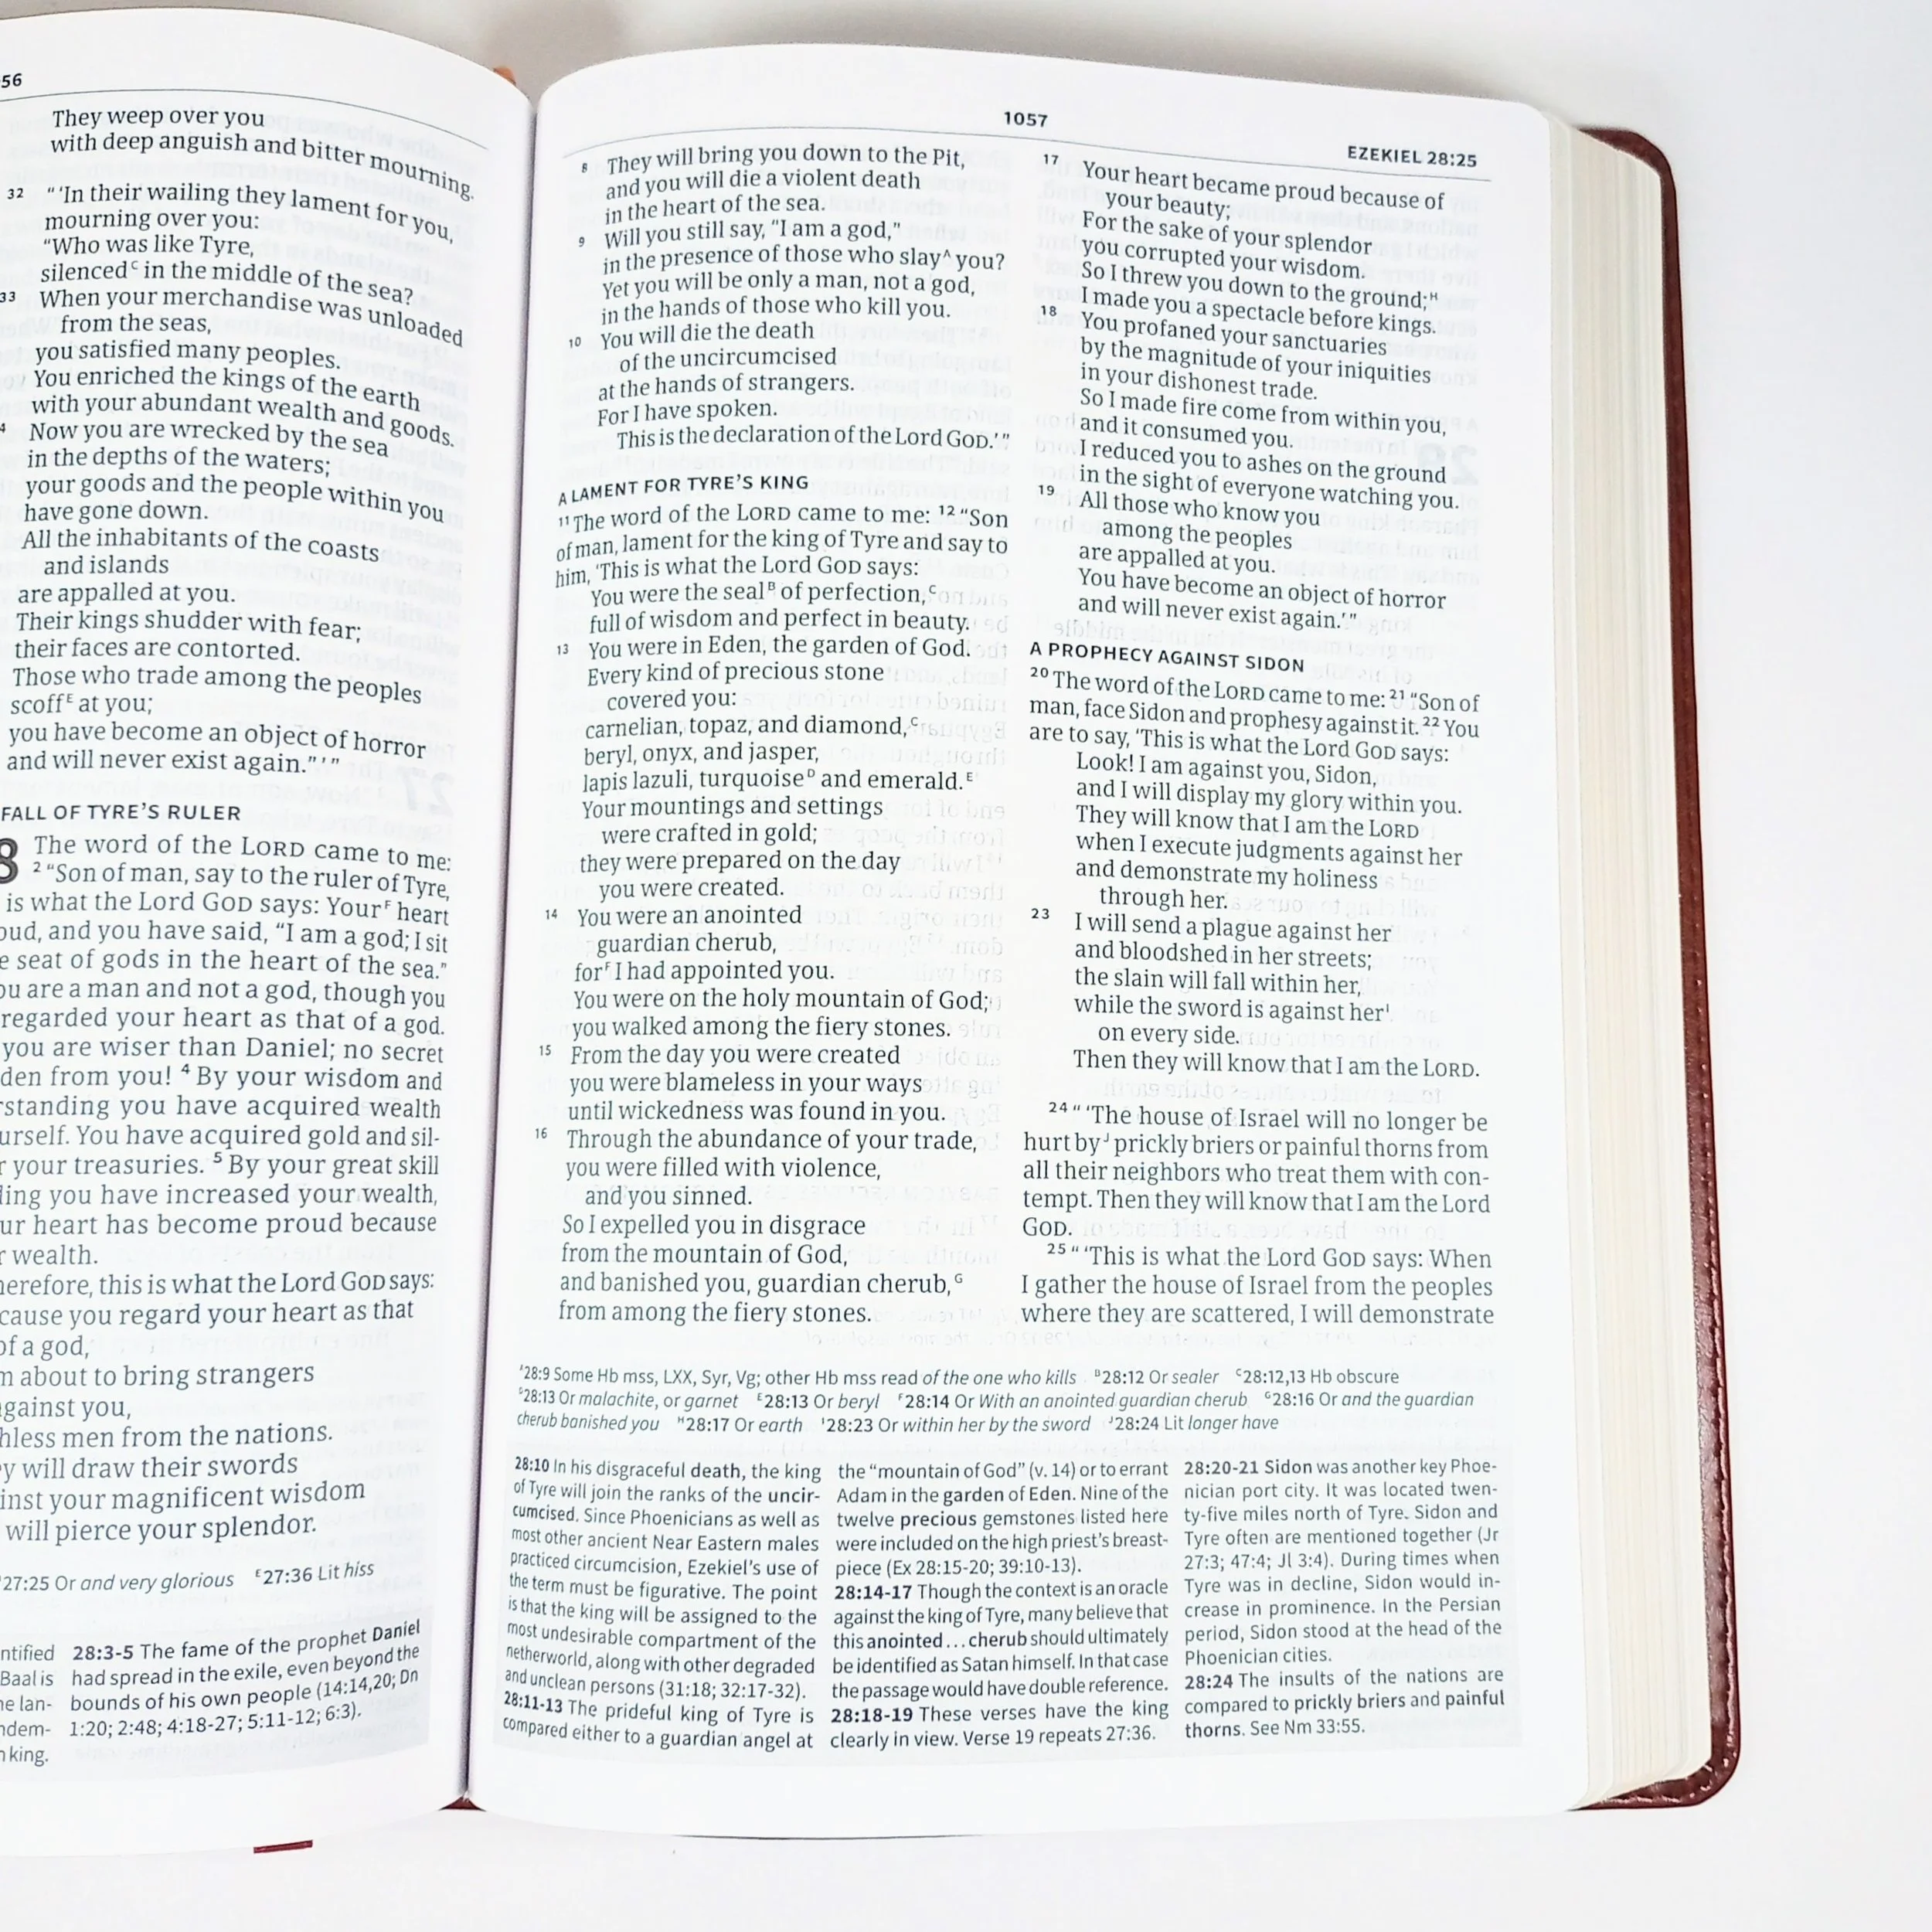 56
They weep over you
with deep anguish and bitter mourning.
32 “ ‘In their wailing they lament for you,
mourning over you:
“Who was like Tyre,
silencedC in the middle of the sea?
33 When your merchandise was unloaded
from the seas,
you satisfied many peoples.
You enriched the kings of the earth
with your abundant wealth and goods.
4 Now you are wrecked by the sea
in the depths of the waters;
your goods and the people within you
have gone down.
All the inhabitants of the coasts
and islands
are appalled at you.
Their kings shudder with fear;
their faces are contorted.
Those who trade among the peoples
scoffE at you;
you have become an object of horror
and will never exist again.” ’ ”
FALL OF TYRE’S RULER
8 The word of the LORD came to me:
2 “Son of man, say to the ruler of Tyre,
is what the Lord GOD says: YourF heart
oud, and you have said, “I am a god; I sit
e seat of gods in the heart of the sea.”
ou are a man and not a god, though you
regarded your heart as that of a god.
you are wiser than Daniel; no secret
den from you! 4 By your wisdom and
rstanding you have acquired wealth
urself. You have acquired gold and sil-
r your treasuries. 5 By your great skill
ding you have increased your wealth,
ur heart has become proud because
r wealth.
herefore, this is what the Lord GOD says:
cause you regard your heart as that
of a god,
m about to bring strangers
against you,
hless men from the nations.
ey will draw their swords
inst your magnificent wisdom
will pierce your splendor.
27:25 Or and very glorious E27:36 Lit hiss
ntified
Baal is
he lan-
ndem-
n king.
28:3-5 The fame of the prophet Daniel
had spread in the exile, even beyond the
bounds of his own people (14:14,20; Dn
1:20; 2:48; 4:18-27; 5:11-12; 6:3).
1057
EZEKIEL 28:25
8 They will bring you down to the Pit,
and you will die a violent death
in the heart of the sea.
9 Will you still say, “I am a god,”
in the presence of those who slayA you?
Yet you will be only a man, not a god,
in the hands of those who kill you.
10 You will die the death
of the uncircumcised
at the hands of strangers.
For I have spoken.
This is the declaration of the Lord GOD.’ ”
A LAMENT FOR TYRE’S KING
11 The word of the LORD came to me: 12 “Son
of man, lament for the king of Tyre and say to
him, ‘This is what the Lord GOD says:
You were the sealB of perfection,C
full of wisdom and perfect in beauty.
13 You were in Eden, the garden of God.
Every kind of precious stone
covered you:
carnelian, topaz, and diamond,C
beryl, onyx, and jasper,
lapis lazuli, turquoiseD and emerald.E
Your mountings and settings
were crafted in gold;
they were prepared on the day
you were created.
14 You were an anointed
guardian cherub,
forF I had appointed you.
You were on the holy mountain of God;
you walked among the fiery stones.
15 From the day you were created
you were blameless in your ways
until wickedness was found in you.
16 Through the abundance of your trade,
you were filled with violence,
and you sinned.
So I expelled you in disgrace
from the mountain of God,
and banished you, guardian cherub,G
from among the fiery stones.
17 Your heart became proud because of
your beauty;
For the sake of your splendor
you corrupted your wisdom.
So I threw you down to the ground;H
I made you a spectacle before kings.
18 You profaned your sanctuaries
by the magnitude of your iniquities
in your dishonest trade.
So I made fire come from within you,
and it consumed you.
I reduced you to ashes on the ground
in the sight of everyone watching you.
19 All those who know you
among the peoples
are appalled at you.
You have become an object of horror
and will never exist again.’ ”
A PROPHECY AGAINST SIDON
20 The word of the LORD came to me: 21 “Son of
man, face Sidon and prophesy against it. 22 You
are to say, ‘This is what the Lord GOD says:
Look! I am against you, Sidon,
and I will display my glory within you.
They will know that I am the LORD
when I execute judgments against her
and demonstrate my holiness
through her.
23 I will send a plague against her
and bloodshed in her streets;
the slain will fall within her,
while the sword is against herI
on every side.
Then they will know that I am the LORD.
24 “ ‘The house of Israel will no longer be
hurt byJ prickly briers or painful thorns from
all their neighbors who treat them with con-
tempt. Then they will know that I am the Lord
GOD.
25 “ ‘This is what the Lord GOD says: When
I gather the house of Israel from the peoples
where they are scattered, I will demonstrate
A28:9 Some Hb mss, LXX, Syr, Vg; other Hb mss read of the one who kills B28:12 Or sealer C28:12,13 Hb obscure
D28:13 Or malachite, or garnet E28:13 Or beryl F28:14 Or With an anointed guardian cherub G28:16 Or and the guardian
cherub banished you H28:17 Or earth I28:23 Or within her by the sword J28:24 Lit longer have
28:10 In his disgraceful death, the king
of Tyre will join the ranks of the uncir-
cumcised. Since Phoenicians as well as
most other ancient Near Eastern males
practiced circumcision, Ezekiel’s use of
the term must be figurative. The point
is that the king will be assigned to the
most undesirable compartment of the
netherworld, along with other degraded
and unclean persons (31:18; 32:17-32).
28:11-13 The prideful king of Tyre is
compared either to a guardian angel at
the “mountain of God” (v. 14) or to errant
Adam in the garden of Eden. Nine of the
twelve precious gemstones listed here
were included on the high priest’s breast-
piece (Ex 28:15-20; 39:10-13).
28:14-17 Though the context is an oracle
against the king of Tyre, many believe that
this anointed . . . cherub should ultimately
be identified as Satan himself. In that case
the passage would have double reference.
28:18-19 These verses have the king
clearly in view. Verse 19 repeats 27:36.
28:20-21 Sidon was another key Phoe-
nician port city. It was located twen-
ty-five miles north of Tyre. Sidon and
Tyre often are mentioned together (Jr
27:3; 47:4; Jl 3:4). During times when
Tyre was in decline, Sidon would in-
crease in prominence. In the Persian
period, Sidon stood at the head of the
Phoenician cities.
28:24 The insults of the nations are
compared to prickly briers and painful
thorns. See Nm 33:55.